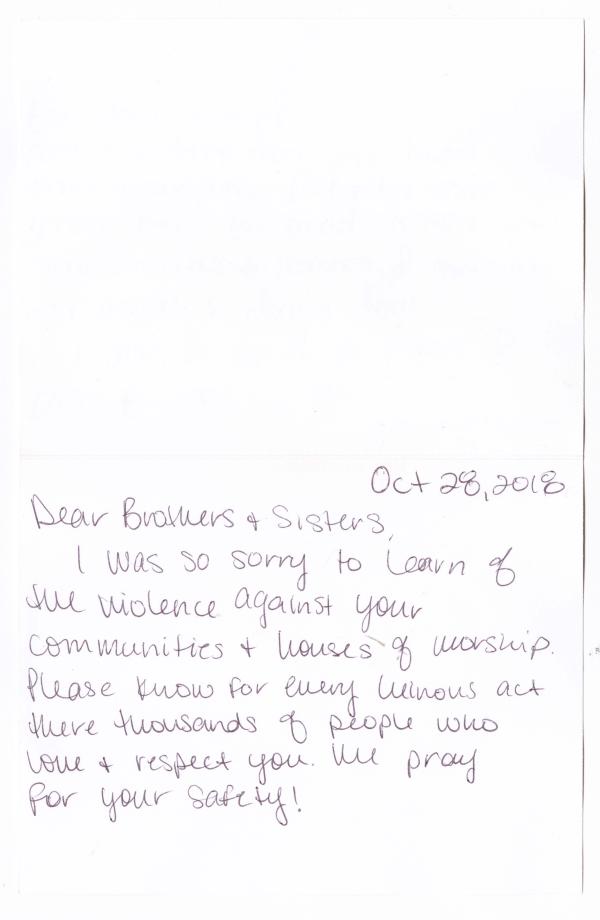 Oct 28, 2018
Dear Brothers + Sisters,
I was so sorry to learn of
the violence against your
communities + houses of worship.
Please know for every heinous act
there thousands of people who
love + respect you. We pray
for your safety!